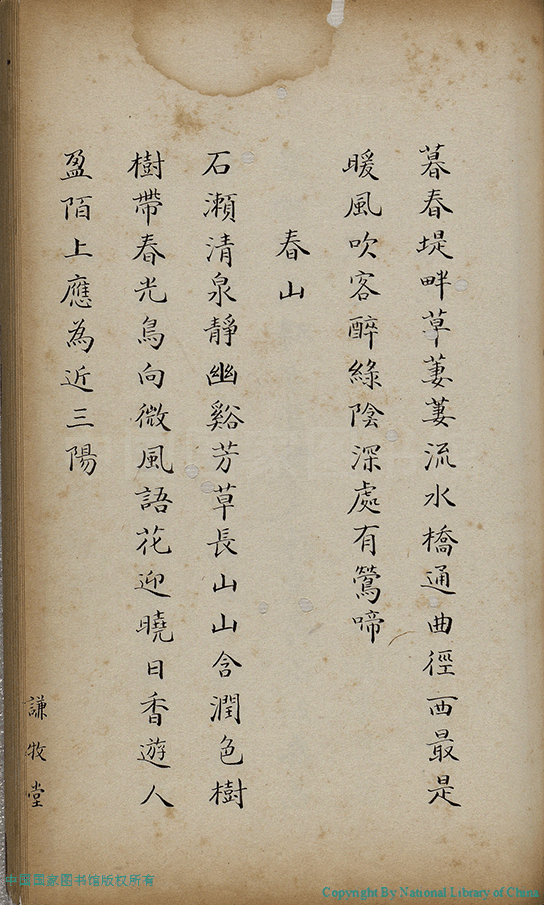 暮春堤畔草萋萋流水橋通曲徑西最是
暖風吹客醉綠陰深處有鶯啼
春山
石瀨清泉靜幽谿芳草長山山含潤色樹
樹帶春光鳥向微風語花迎曉日香遊人
盈陌上應為近三陽
謙牧堂
中国国家图书馆版权所有
Copyright By National Library of China